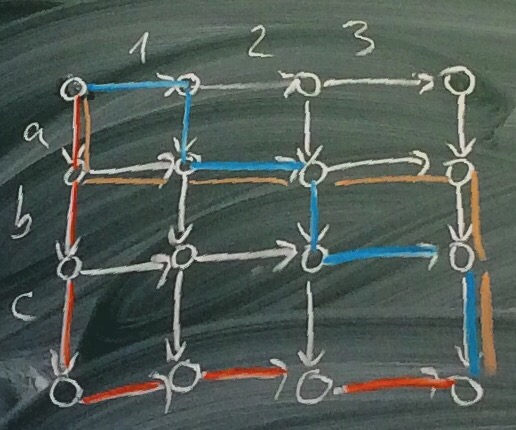 1 2 3
a
b
c